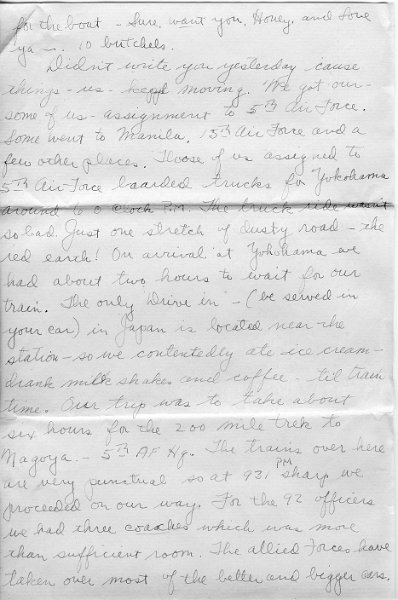 for the boat - Sure want you, Honey, and love
ya -. 10 butchels.
Didn't write you yesterday cause
things - us - kept moving. We got our -
some of us - assignment to 5th Air Force.
Some went to Manila, 13th Air Force and a
few other places. Those of us assigned to
5th Air Force boarded trucks for Yokohama
around 6 o clock P.M. The truck ride wasn't
so bad. Just one stretch of dusty road - the
red earth! On arrival at Yokohama we
had about two hours to wait for our
train. The only Drive in - (be served in
your car) in Japan is located near the
station - so we contentedly ate ice cream -
drank milk shakes and coffee - til train
time. Our trip was to take about
six hours for the 200 mile trek to
Nagoya. - 5th AF Hq. The trains over here
are very punctual so at 931 PM sharp we
proceeded on our way. For the 92 officers
we had three coaches which was more
than sufficient room. The allied Forces have
taken over most of the better and bigger cars.